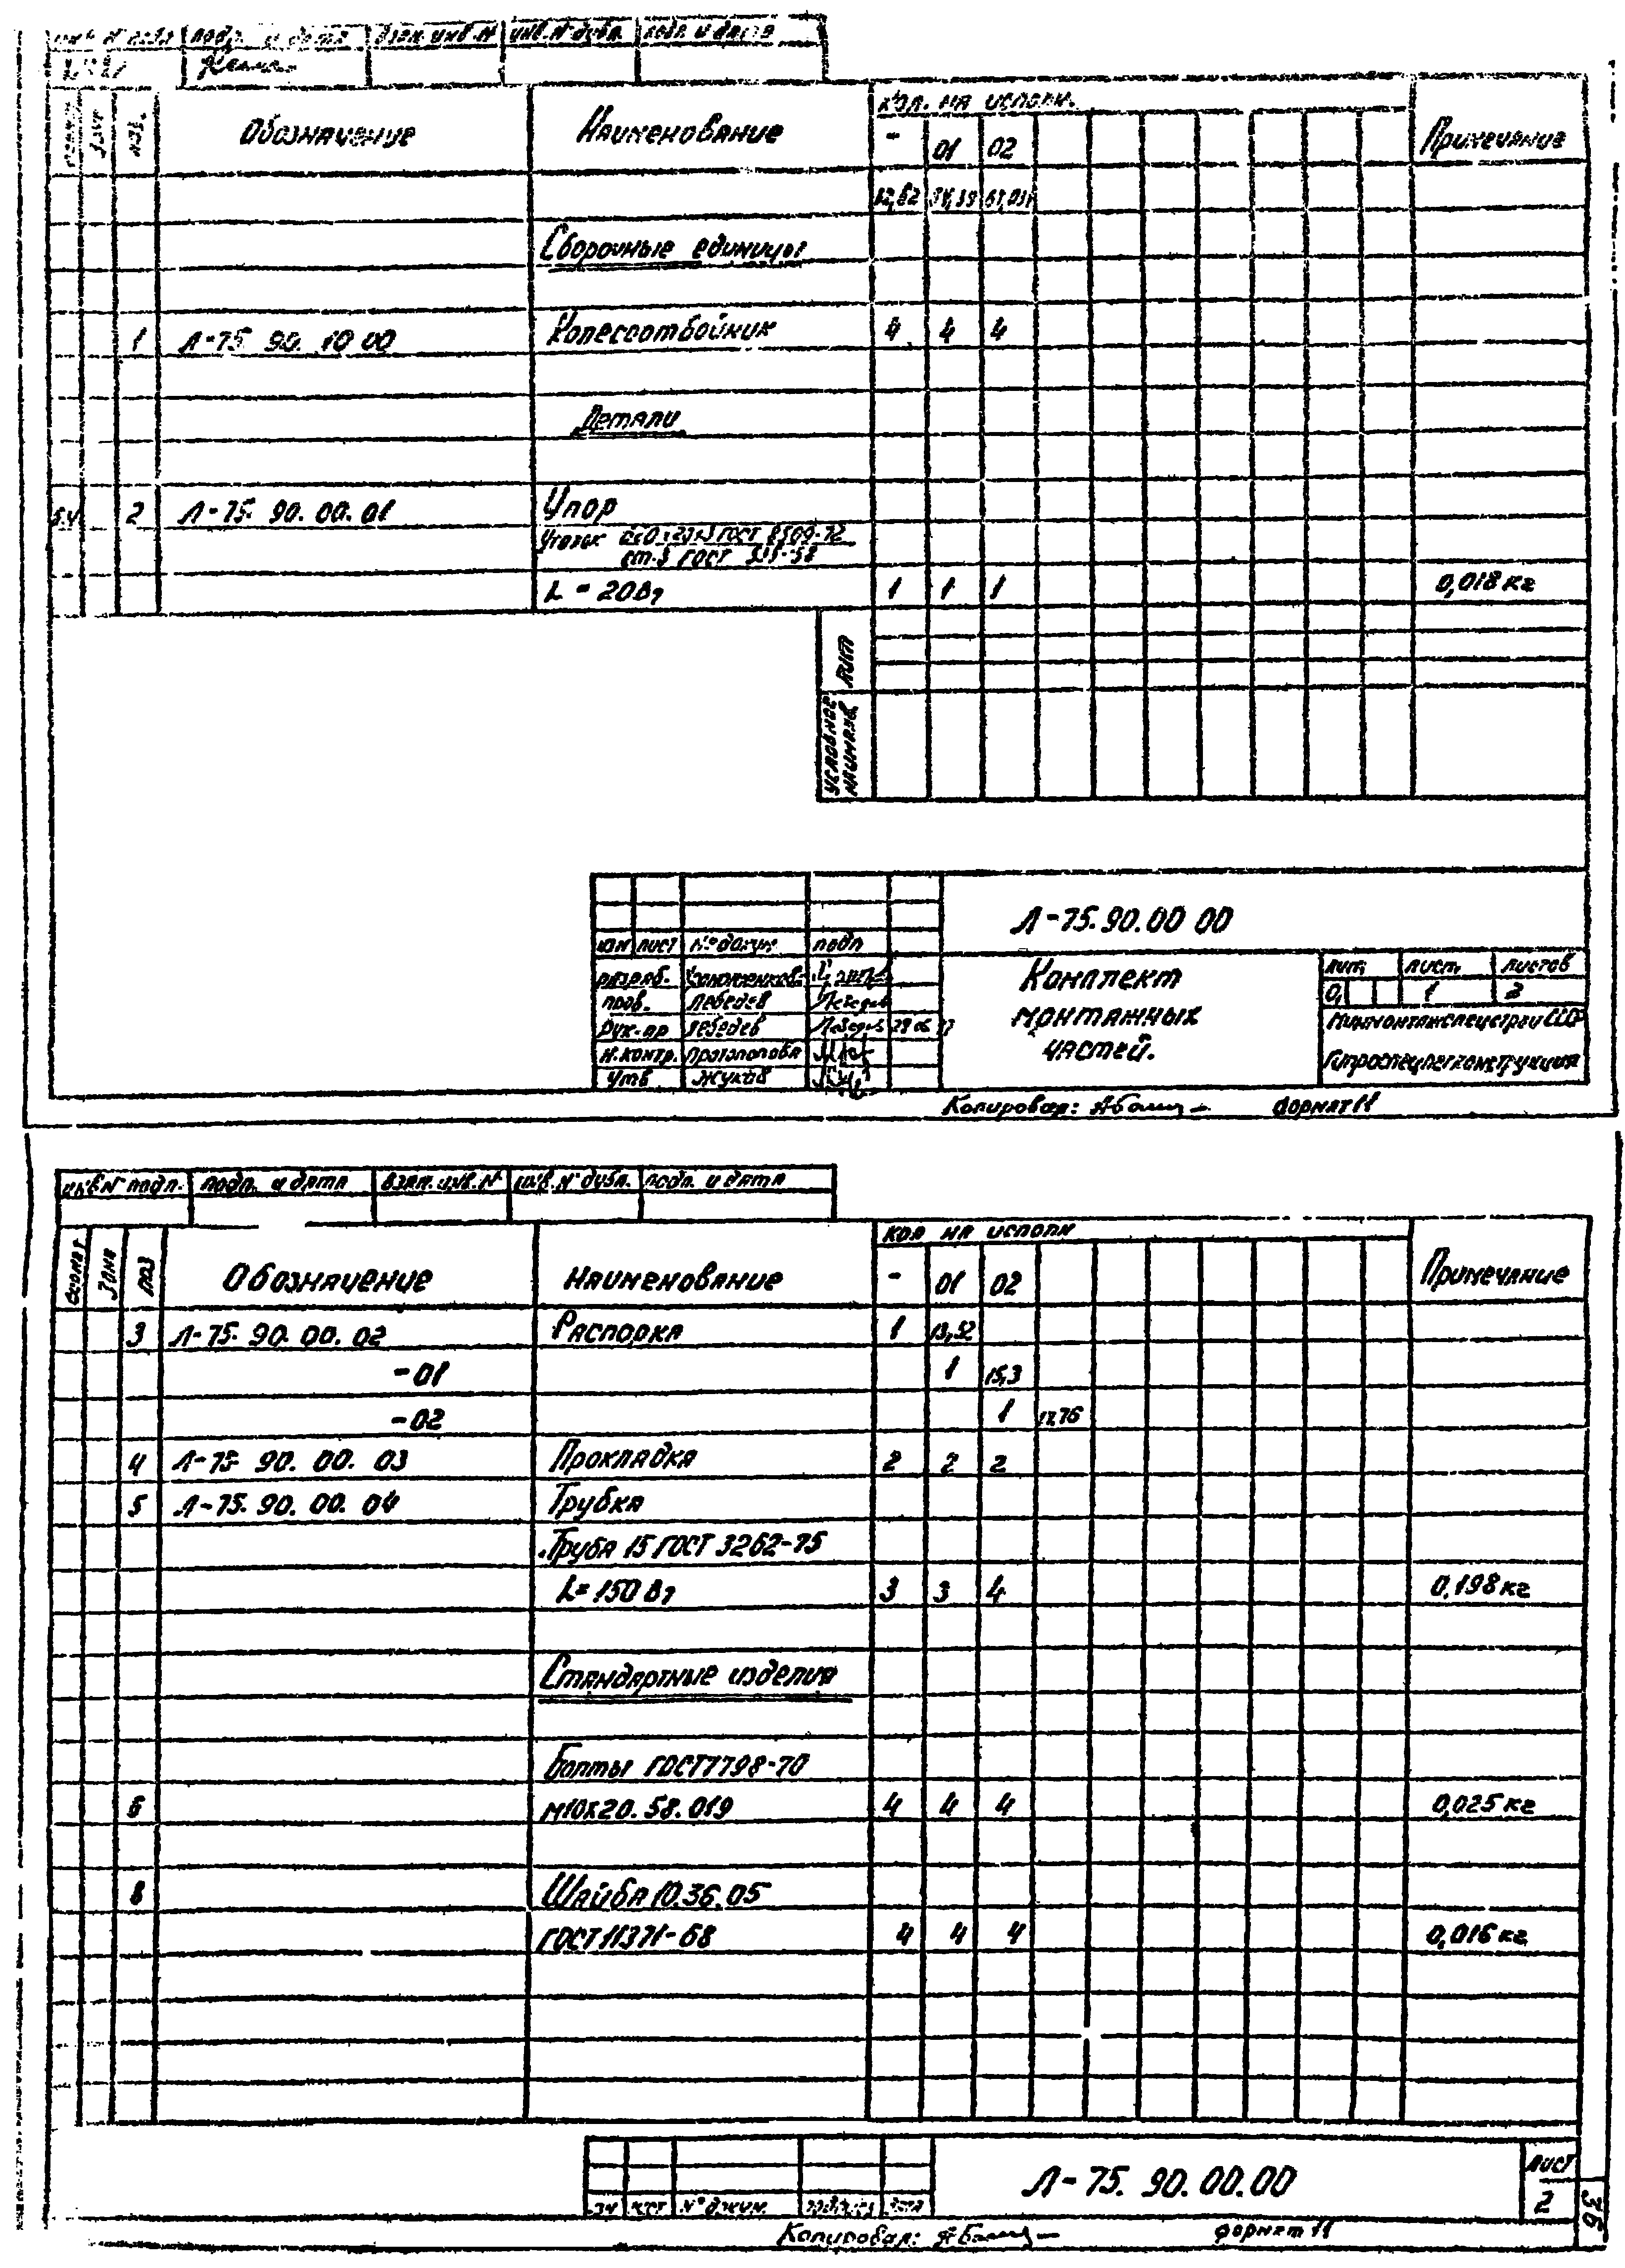 инв. № подл. подп. и дата взам. инв. № инв. № дубл. подп. и дата
формат зона поз. Обозначение Наименование кол. на исполн. Примечание
- 01 02
Сборочные единицы
1 Л-75 90. 10 00 Колесоотбойник 4 4 4
Детали
БЧ 2 Л-75. 90. 00. 01 Упор
Уголок ГОСТ 8509-72
ст.3 ГОСТ
L = 20 1 1 1 0,018 кг
лит
условное наимен.
Л-75. 90. 00 00
изм лист № докум подп
разраб.
пров. Лебедев
рук. гр Лебедев
н. контр. Протопопова
утв Жуков
Комплект
монтажных
частей.
лит, лист, листов
0, 1 2
Минмонтажспецстрой СССР
Гипроспецлегконструкция
Копировал: формат 11
инв № подл. подп. и дата взам. инв. № инв. № дубл. подп. и дата
формат зона поз Обозначение Наименование кол на исполн Примечание
- 01 02
3 Л-75. 90. 00. 02 Распорка 1 13,52
-01 1 15,3
-02 1 17,76
4 Л-75 90. 00. 03 Прокладка 2 2 2
5 Л-75. 90. 00. 04 Трубка
Труба 15 ГОСТ 3262-75
L= 150 3 3 4 0,198 кг
Стандартные изделия
Болты ГОСТ 7798-70
6 М10х20. 58. 019 4 4 4 0,025 кг
8 Шайба 10.36.05
ГОСТ 11371-68 4 4 4 0,016 кг
Л-75. 90. 00. 00
лист
2
№ докум.
Копировал: формат 11
36